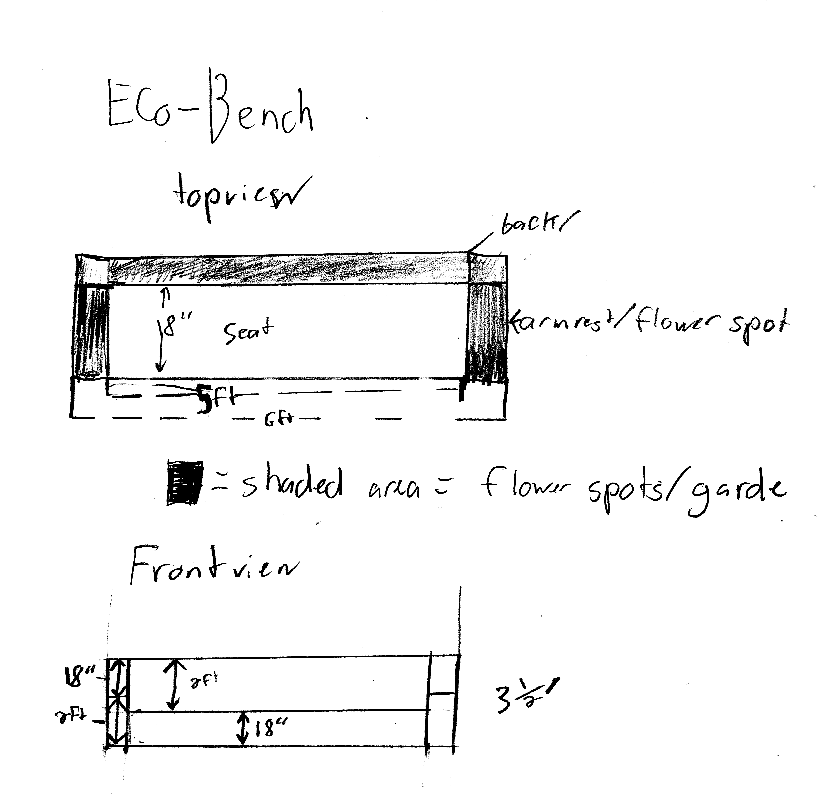 ECo-Bench
topview
back/
18"
Seat
armrest/flower spot
5ft
6ft
= shaded area = flower spots/garde
Frontview
18"
2ft
2ft
18"
3 1/2'